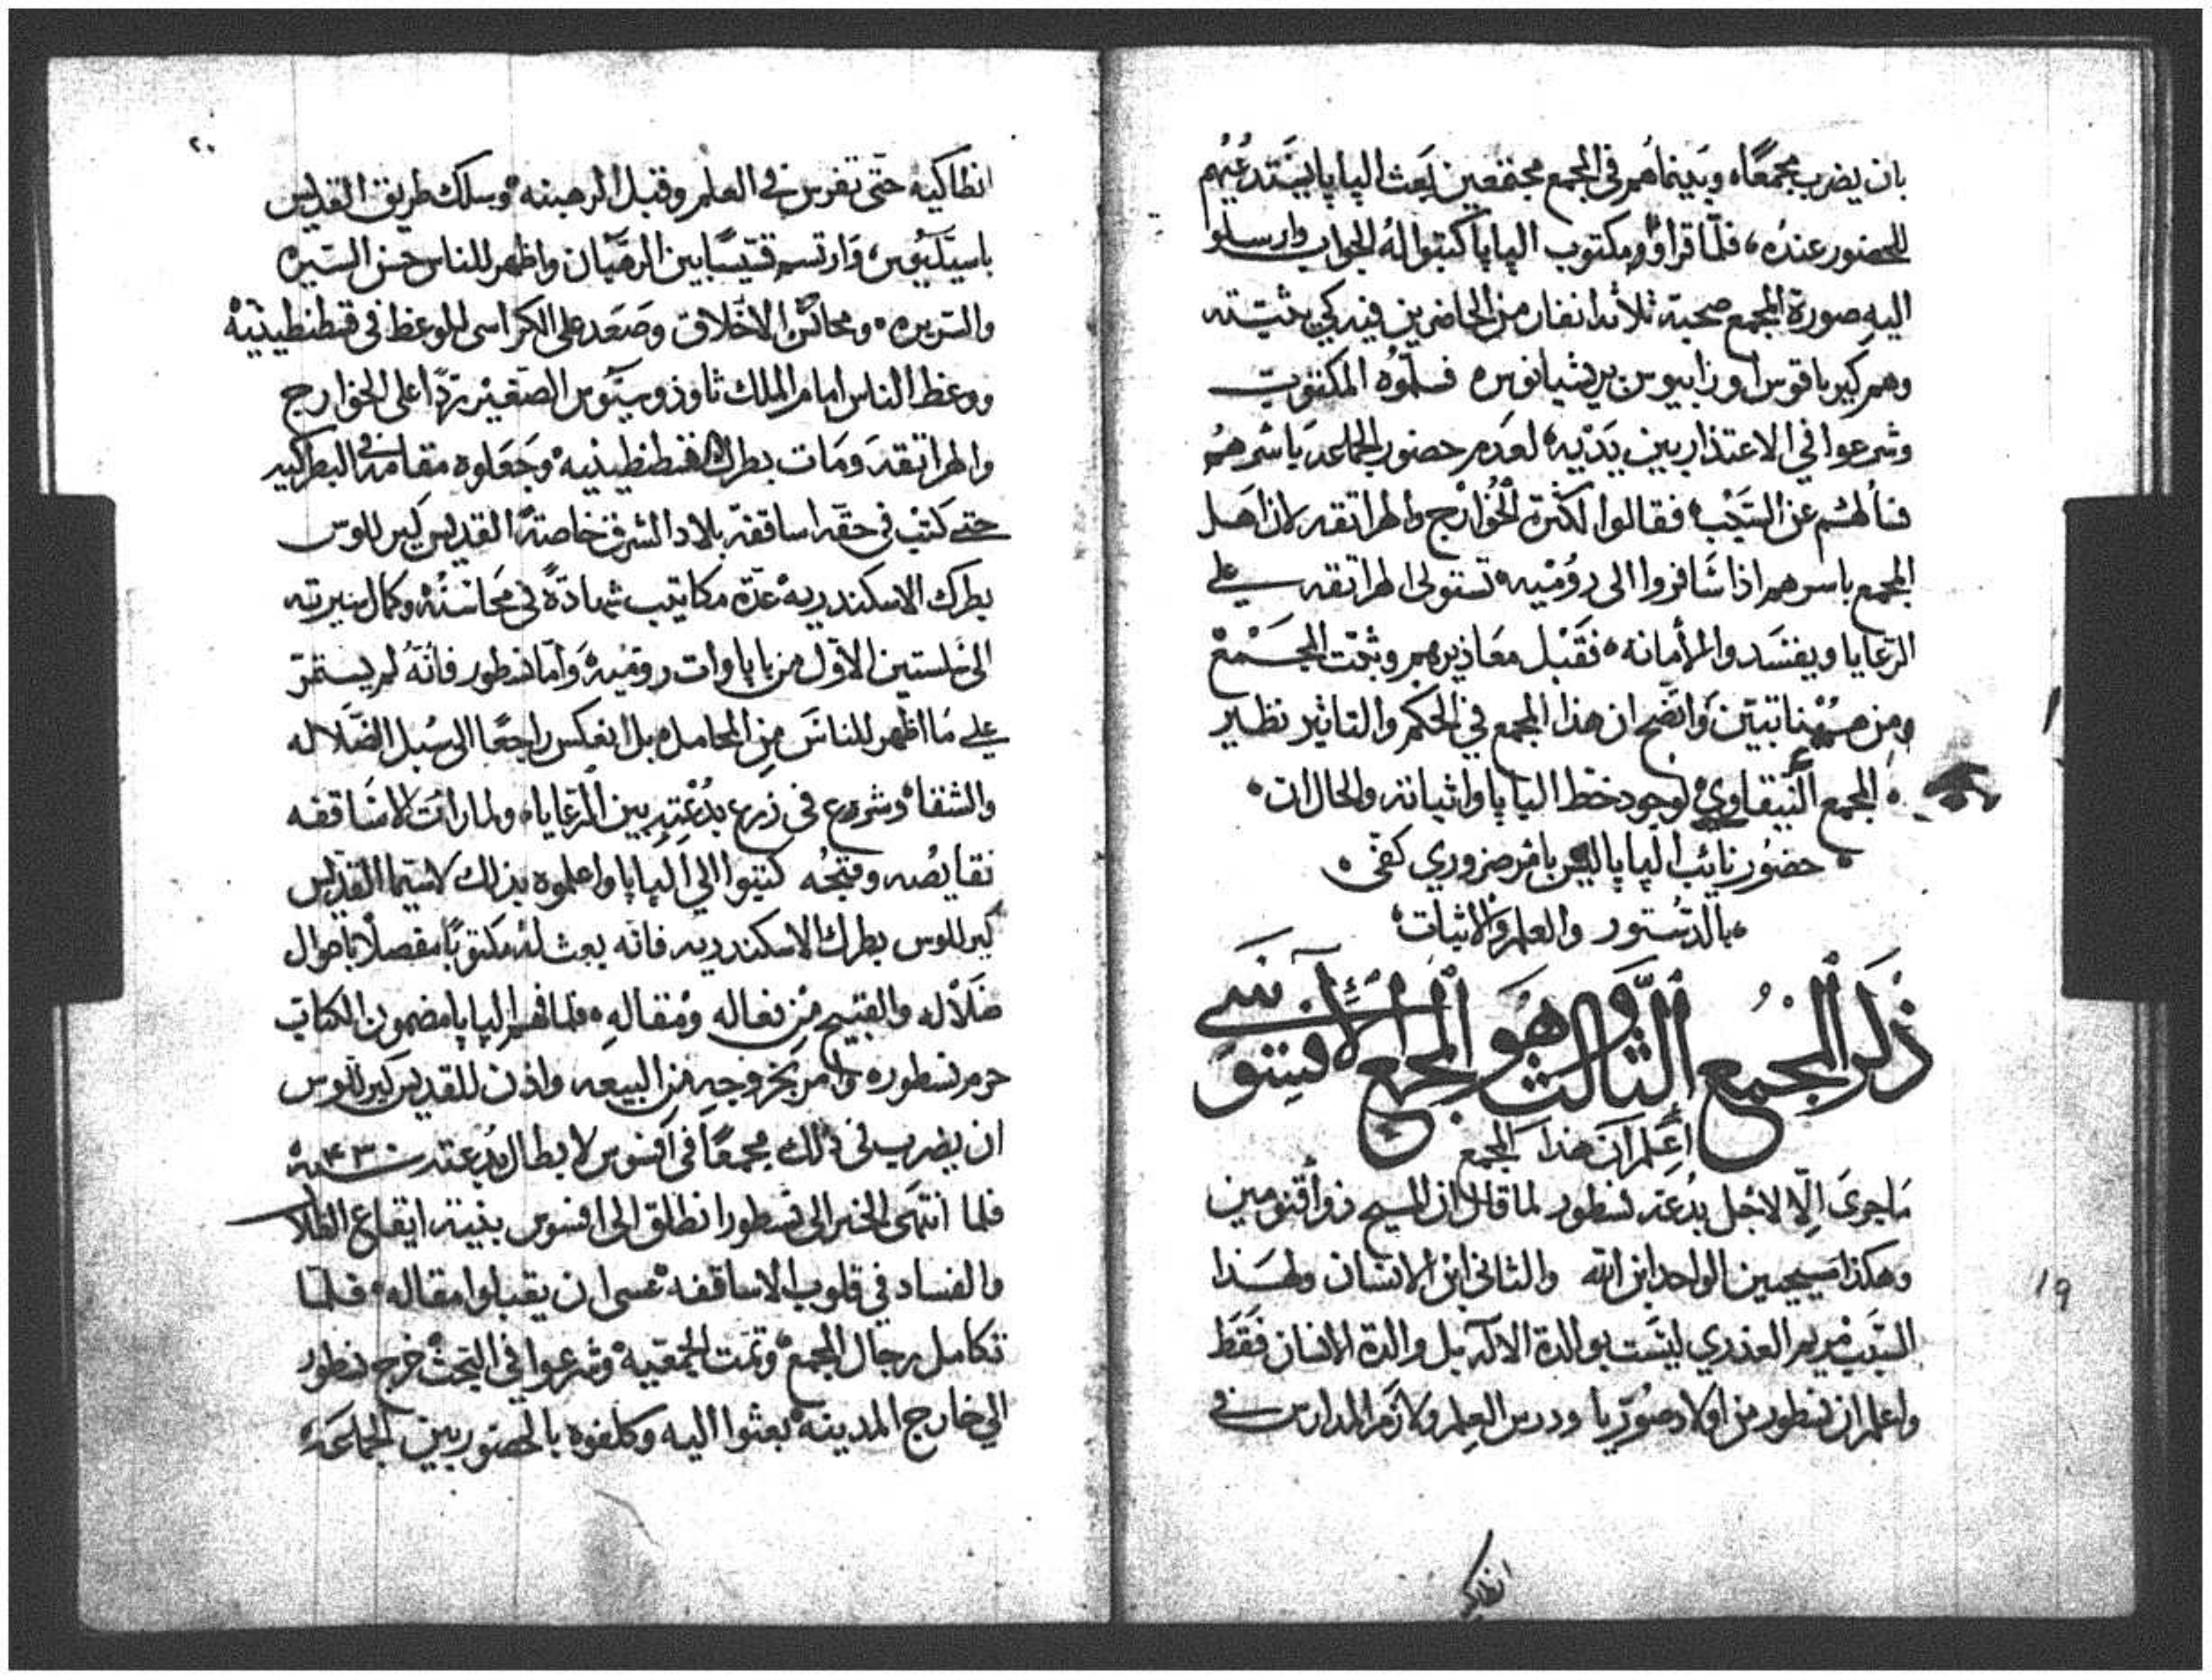 بان يضرب مجمعًا، وبينما هم في المجمع مجتمعين بعث البابا يستدعيهم
للحضور عنده، فلمّا قراوا مكتوب البابا كتبوا له الجواب وارسلوا
اليه صورة المجمع صحبة ثلاثه انفار من الحاضرين فيه كي يثبّته
وهم كيرياقوس اوزابيوس بريشيانوس، فسلموه المكتوب
وشرعوا في الاعتذار بين يديه، لعدم حضور الجماعه باسرهم
فسألهم عن السبب، فقالوا لكثرة الخوارج والهراتقه لان اهل
المجمع باسرهم اذا سافروا الى روميه، تستولى الهراتقه على
الرعايا ويفسدوا الأمانه، فقبل معاذيرهم وثبّت المجمع
ومن ههنا تبيّن واتضح ان هذا المجمع في الحكم والتاثير نظير
المجمع النيقاوي، لوجود خط البابا واثباته، والحال ان
حضور نايب البابا ليس بامر ضروري كفى
بالدستور والعلم والاثبات
ذكر المجمع الثالث وهو المجمع الافسوسي
أعلم ان هذا المجمع
ما جرى الّا لاجل بدعة نسطور لما قال ان المسيح ذو أقنومين
وهكذا مسيحيين الواحد ابن الله والثاني ابن الانسان ولهذا
السبب مريم العذري ليست بوالدة الاله بل والدة الانسان فقط
واعلم ان نسطور من اولاد سوريا ودرس العلم ولازم المدارس في
انطاكيه
١٩
٢٠
انطاكيه حتى تفرس في العلم وقبل الرهبنه، وسلك طريق القديس
باسيليوس، وارتسم قسّيسًا بين الرهبان واظهر للناس حسن السيره
والسريره، ومحاسن الاخلاق وصعد على الكراسى للوعظ في قسطنطينيه
ووعظ الناس امام الملك ثاوذوسيوس الصغير ردًّا على الخوارج
والهراتقه، ومات بطرك قسطنطينيه، وجعلوه مقامه في البطركيه
حتى كتب في حقه اساقفة بلاد الشرق خاصةً القديس كيرللوس
بطرك الاسكندريه، عدة مكاتيب شهادةً في محاسنه، وكمال سيرته
الى شلستين الاول من باباوات روميه، وأما نسطور فانّه لم يستمرّ
على ما اظهر للناس من المحامل، بل انعكس راجعًا الى سبل الضلاله
والشقا، وشرع في زرع بدعته بين الرعايا، ولما رات الاساقفه
نقايصه وقبحه كتبوا الي البابا واعلموه بذلك لاسيما القديس
كيرللوس بطرك الاسكندريه فانه بعث له مكتوبًا مفصلًا باحوال
ضلاله والقبيح من فعاله ومقاله، فلما فهم البابا مضمون الكتاب
حرم نسطور، وامر بخروجه من البيعه واذن للقديس كيرللوس
ان يضرب في ذلك مجمعًا في افسوس لابطال بدعته سنة ٤٣٠
فلما انتهى الخبر الى نسطور انطلق الى افسوس بنية ايقاع الضلال
والفساد في قلوب الاساقفه، عسى ان يقبلوا مقاله، فلمّا
تكامل رجال المجمع، وتمت الجمعيه، وشرعوا في البحث خرج نسطور
الي خارج المدينه، بعثوا اليه وكلفوه بالحضور بين الجماعه